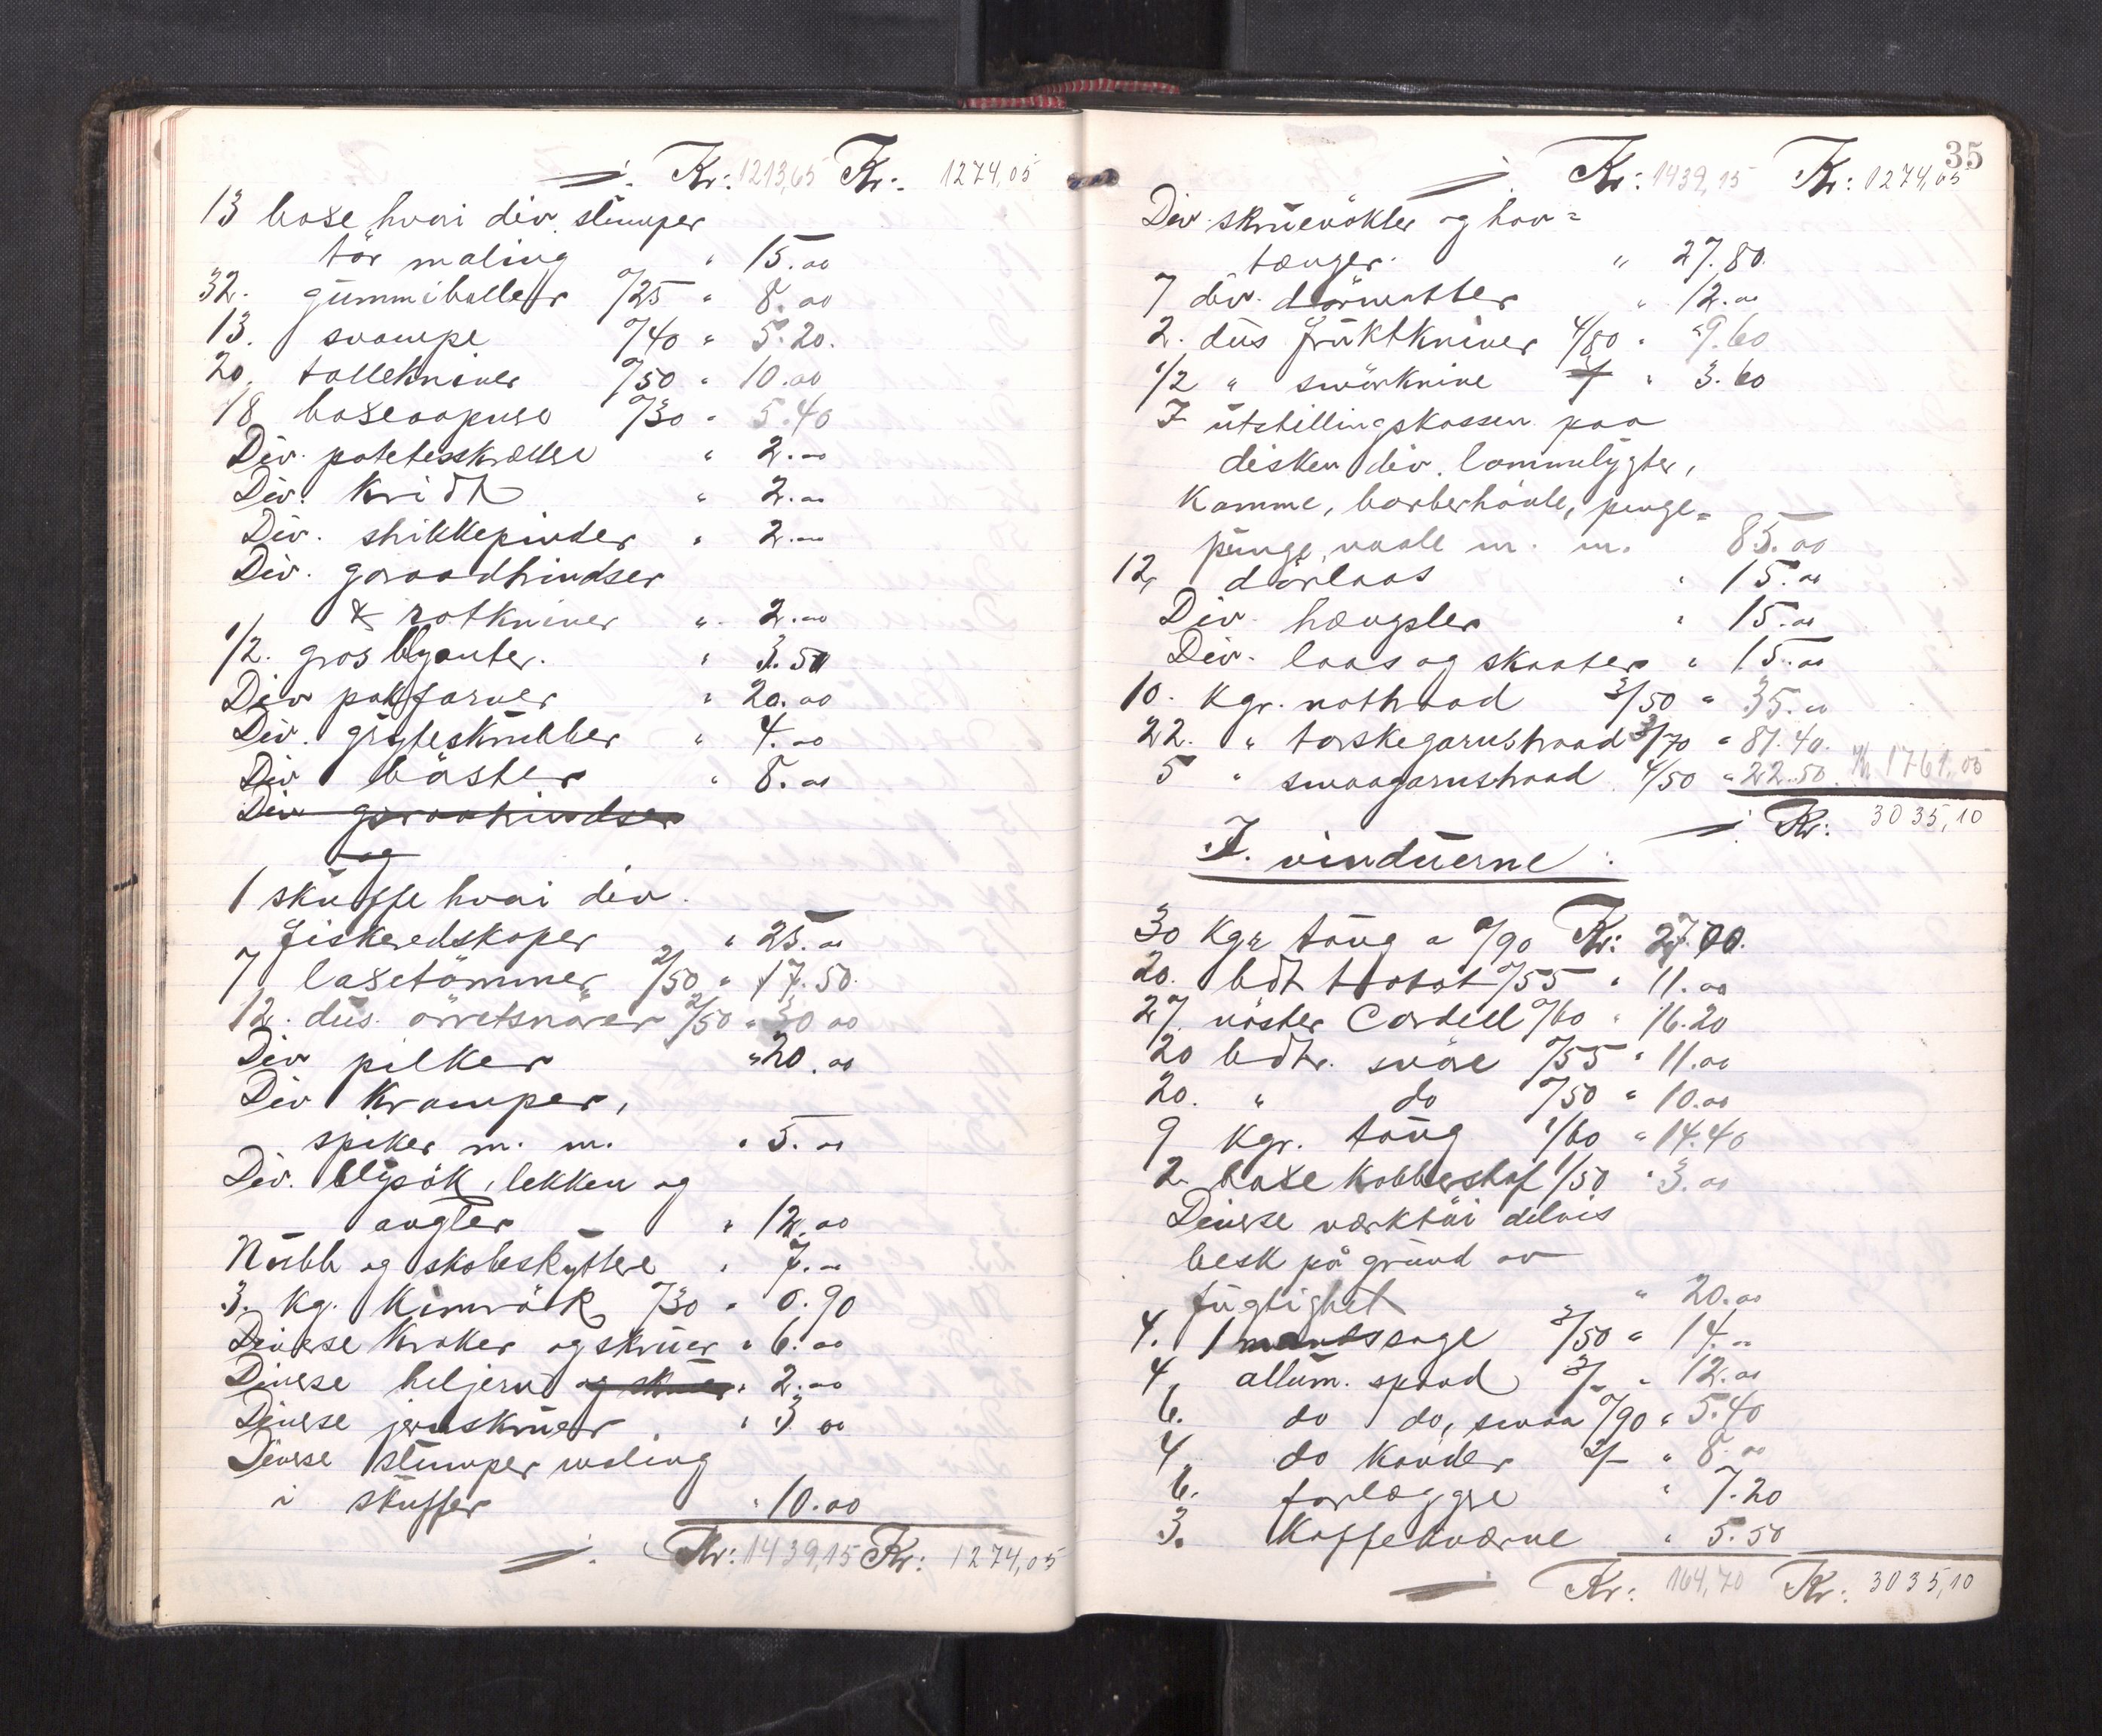 ./. Kr: 1213,65 Kr: 1274,05
13 baxe hvori div. stumper
tör maling " 15.00
32. gummiballer 0/25 " 8.00
13. svampe 0/40 " 5.20.
20. tollekniver 0/50 " 10.00
18 boxeaapnere 0/30 " 5.40
Div. potetesskrællere " 2.00
Div. Kridt " 2.00
Div. strikkepinder " 2.00
Div. graadhindser
& rotkniver " 2.00
1/2. gros blyanter. " 3.50
Div pakfarver " 20.00
Div. gryteskrubber " 4.00
Div börster " 8.00
Div
og
1 skuffe hvori div.
fiskeredskaper " 25.00
7 laxetömmer 2/50 " 17.50.
12. dus. örretsnörer 2/50 " 30 00
Div pilker " 20.00
Div Kramper,
spiker m. m. " 5.00
Div. blysök, lekken og
angler " 12.00
Nubb og skobeskyttere " 7.00
3. Kg. Kimrök 0/30 " 0.90
Diverse Kroker og skruer " 6.00
Diverse heljern og skruer " 2.00
Diverse jernskruer " 3 00
Diverse stumper maling
i skuffer " 10.00
./. Kr: 1439,15 Kr: 1274,05
35
./. Kr: 1439,15 Kr: 1274,05
Div skruenökler og hov=
tænger. " 27.80.
7 div. dörmatter " 12.00
2. dus fruktkniver 4/80 " 9.60
1/2 " smörknive " 3.60
I utstillingskassen paa
disken div. lommelygter,
Kamme, barberhövle, penge=
punge, naale m. m. 85.00
12, dörlaas " 15.00
Div. hængsler " 15.00
Div. laas og skaater " 15.00
10. Kgr. nothraad 3/50 " 35.00
22. " torskegarnstraad 3/70 " 81.40.
5 " smaagarnstraad 4/50 " 22.50. Kr 1761,05
./. Kr: 3035,10
I. vinduerne:
30 Kgr taug a 0/90 Kr: 27.00.
20. bdt 0/55 " 11.00
27. nöster Cordell 0/60 " 16.20
20 bdtr. snöre 0/55 " 11.00
20. " do 0/50 " 10.00
9 Kgr. taug 1/60 " 14.40
2. baxe Kobberstof 1/50 " 3.00
Diverse værktöi delvis
besk på grund av
fugtighet " 20.00
4. 1 mandssage 3/50 " 14.00
4, allum. spand 3/- " 12.00
6. do do, smaa 0/90 " 5.40
4. do Kander 2/- " 8.00
6. forlæggre " 7.20
3. Kaffekværne " 5.50
./. Kr: 164,70 Kr: 3035,10